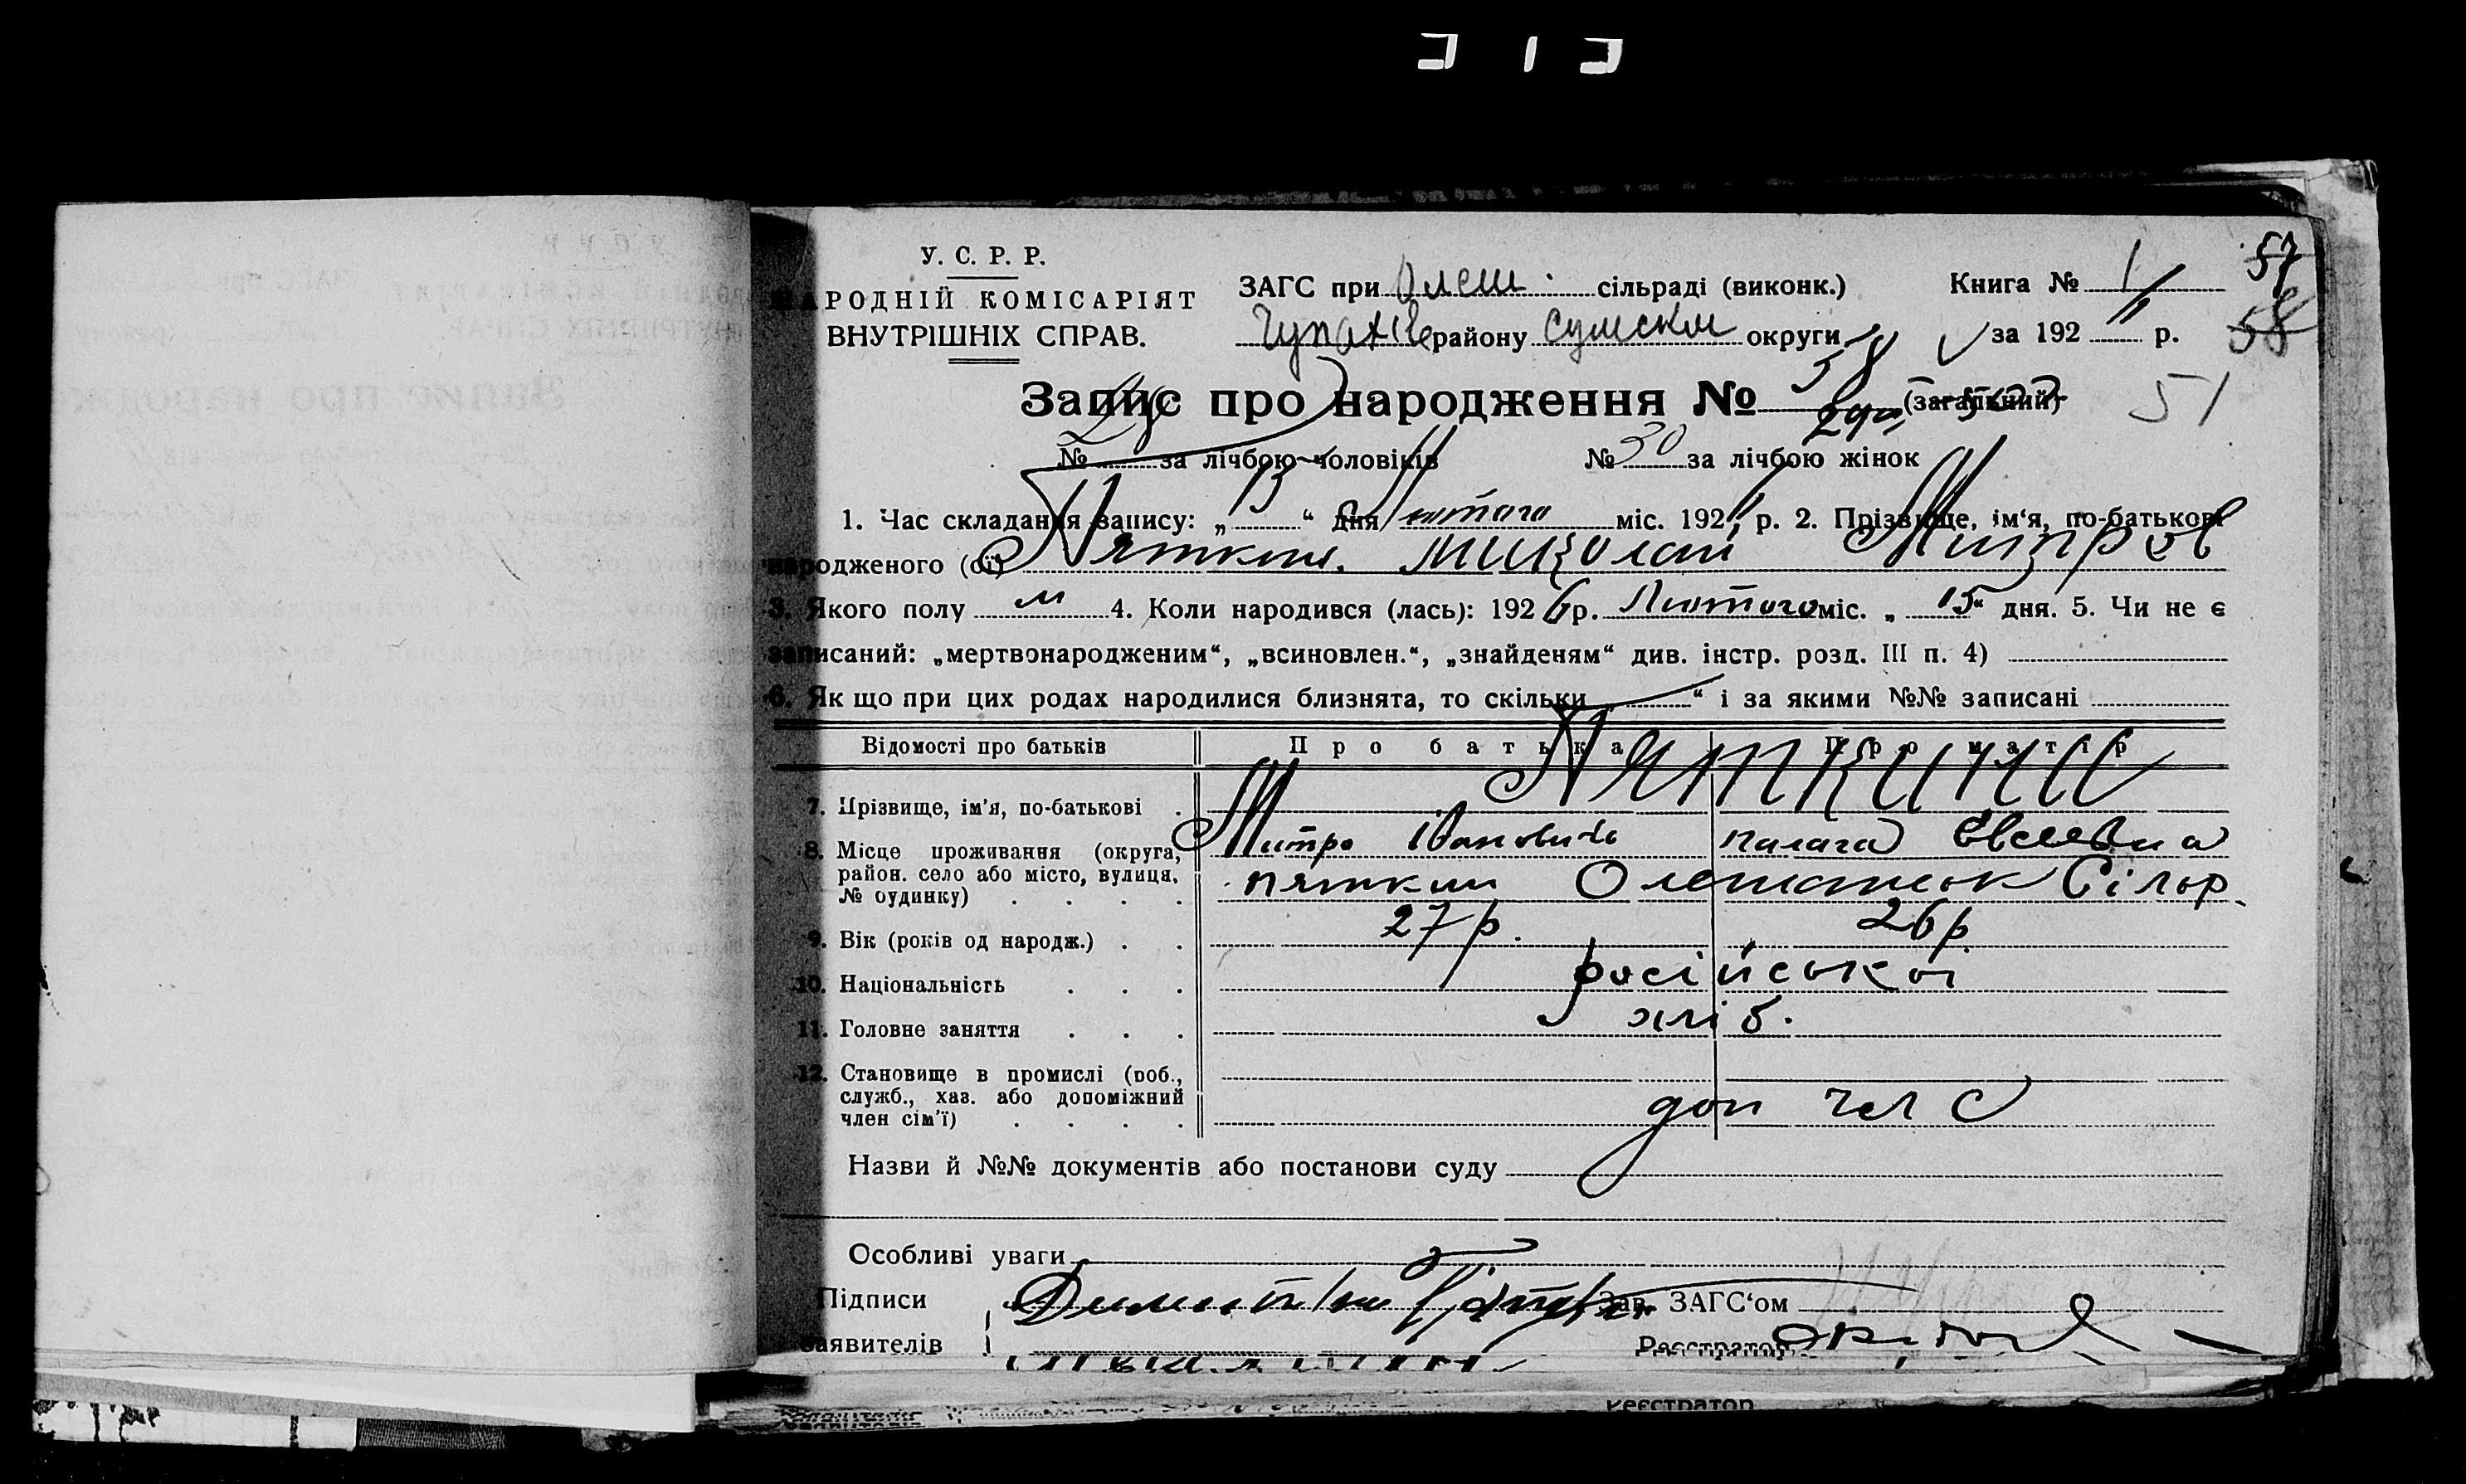 У. С. Р. Р.
НАРОДНІЙ КОМІСАРІЯТ
ВНУТРІШНІХ СПРАВ.
ЗАГС при Олеш. сільраді (виконк.)
району Сумськ округи
Книга № 1
за 192 р.
57
58
51
Запис про народження № 58 (загальний)
№ за лічбою чоловіків № 30 за лічбою жінок
1. Час складання запису: „ “ дня лютого міс. 192 р. 2. Прізвище, ім'я, по-батькові
народженого (ої) Пяткин. Миколай Митров
3. Якого полу м 4. Коли народився (лась): 1926 р. Лютого міс. „15“ дня. 5. Чи не є
записаний: „мертвонародженим“, „всиновлен.“, „знайденям“ див. інстр. розд. III п. 4)
6. Як що при цих родах народилися близнята, то скільки “ і за якими №№ записані
Відомості про батьків Про батька Про матір
Пяткины
7. Прізвище, ім'я, по-батькові .
Митро Иванович Палага Евсеевна
8. Місце проживання (округа,
район. село або місто, вулиця,
№ будинку) . . . .
Пяткин Сільр.
9. Вік (років од народж.) . . 27 р. 26 р
10. Національність . . . російської
11. Головне заняття . . . хліб.
12. Становище в промислі (роб.,
служб., хаз. або допоміжний
член сім'ї) . . . . доп чл С
Назви й №№ документів або постанови суду
Особливі уваги
Підписи
Зав. ЗАГС'ом
заявителів
Реєстратор
Реєстратор